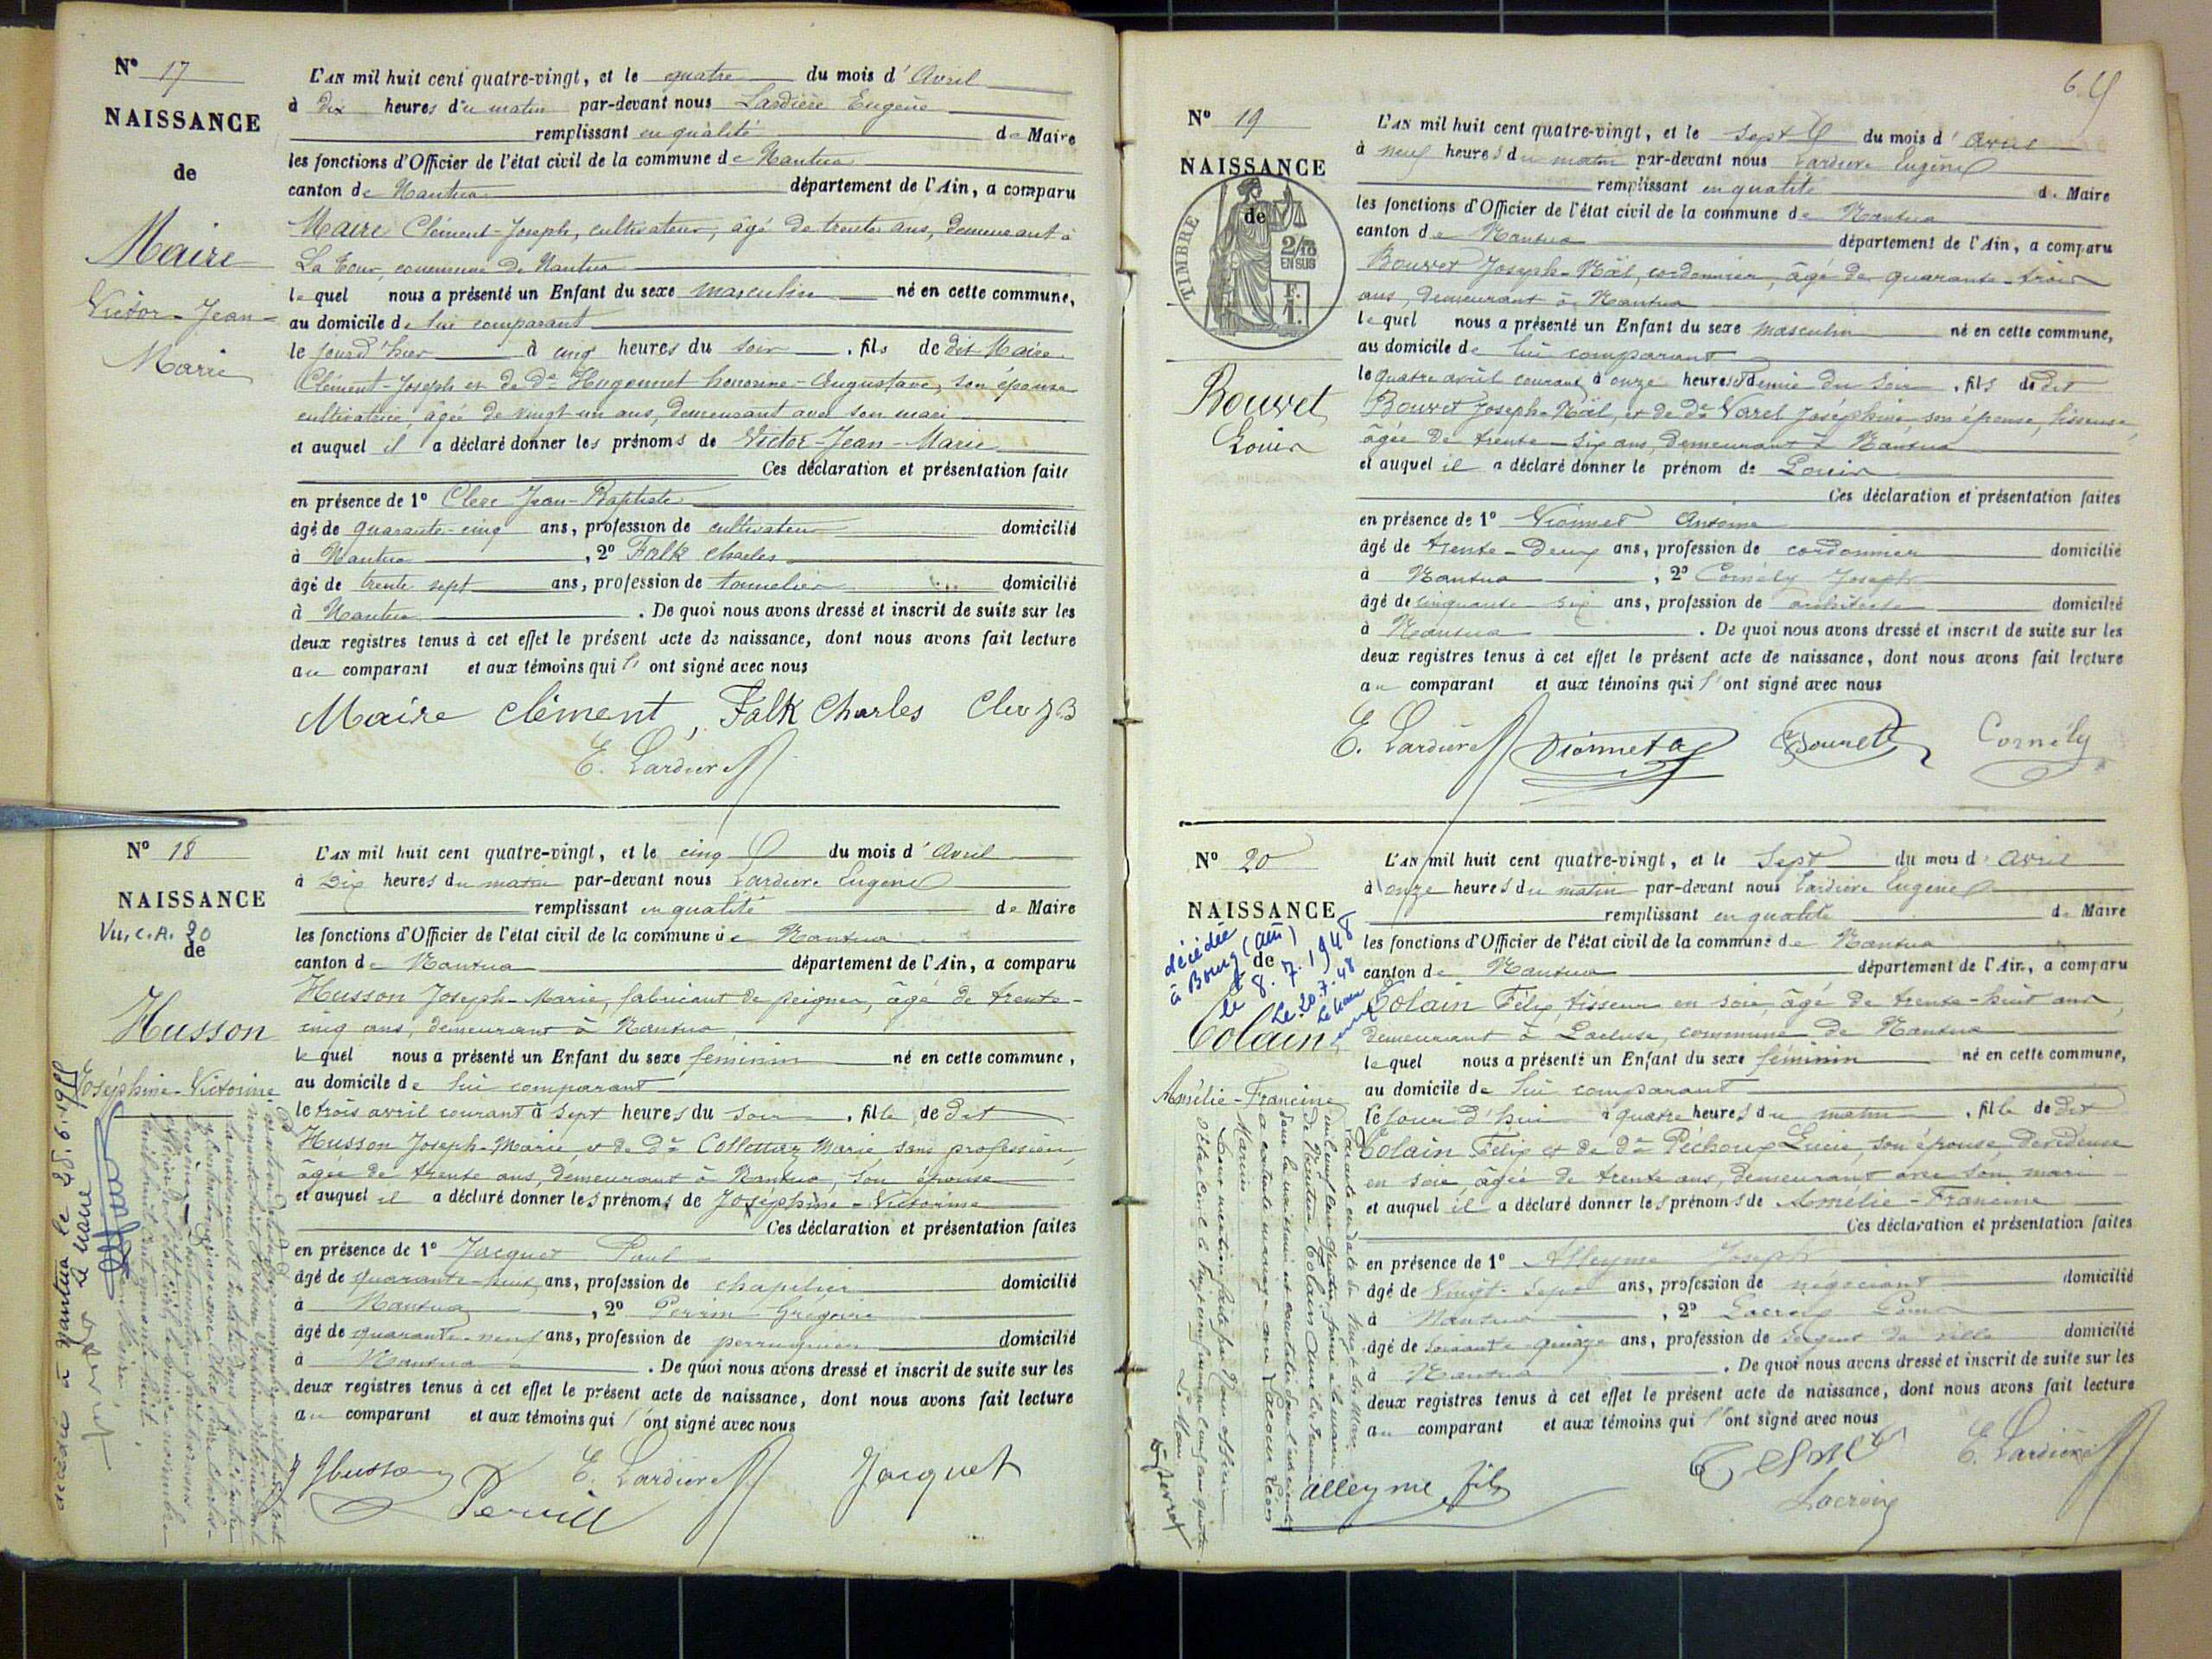 N° 17
NAISSANCE
de
Maire
Victor-Jean-
Marie
L'AN mil huit cent quatre-vingt, et le quatre du mois d'Avril
à dix heures du matin par-devant nous Lardière Eugène
remplissant en qualité de Maire
les fonctions d'Officier de l'état civil de la commune de Nantua
canton de Nantua département de l'Ain, a comparu
Maire Clément-Joseph, cultivateur, âgé de trente ans, demeurant à
La Tour, commune de Nantua
lequel nous a présenté un Enfant du sexe masculin né en cette commune,
au domicile de lui comparant
le jourd'hier à cinq heures du soir, fils de dit Maire
Clément-Joseph et de De Hugonnet honorine-Augustave, son épouse
cultivatrice, âgée de vingt-un ans, demeurant avec son mari
et auquel il a déclaré donner les prénoms de Victor-Jean-Marie
Ces déclaration et présentation faite
en présence de 1° Clerc Jean-Baptiste
âgé de quarante-cinq ans, profession de cultivateur domicilié
à Nantua, 2° Falk Charles
âgé de trente sept ans, profession de tonnelier domicilié
à Nantua. De quoi nous avons dressé et inscrit de suite sur les
deux registres tenus à cet effet le présent acte de naissance, dont nous avons fait lecture
au comparant et aux témoins qui l'ont signé avec nous
Maire Clément, Falk Charles Clerc JB
E. Lardière
N° 18
NAISSANCE
Vu, C.A. 20
de
Husson
Joséphine-Victorine
décédée à Nantua le 25.6.19
Le Maire
L'AN mil huit cent quatre-vingt, et le cinq du mois d'Avril
à Dix heures du matin par-devant nous Lardière Eugène
remplissant en qualité de Maire
les fonctions d'Officier de l'état civil de la commune de Nantua
canton de Nantua département de l'Ain, a comparu
Husson Joseph-Marie, fabricant de peignes, âgé de trente-
cinq ans, demeurant à Nantua
lequel nous a présenté un Enfant du sexe féminin né en cette commune,
au domicile de lui comparant
le trois avril courant à sept heures du soir, fille de dit
Husson Joseph-Marie, et de De Collettaz Marie sans profession,
âgée de trente ans, demeurant à Nantua, son épouse
et auquel il a déclaré donner les prénoms de Joséphine-Victorine
Ces déclaration et présentation faites
en présence de 1° Jacquet Paul
âgé de quarante-huit ans, profession de chapelier domicilié
à Nantua, 2° Perrin Grégoire
âgé de quarante-neuf ans, profession de perruquier domicilié
à Nantua. De quoi nous avons dressé et inscrit de suite sur les
deux registres tenus à cet effet le présent acte de naissance, dont nous avons fait lecture
au comparant et aux témoins qui l'ont signé avec nous
J Husson E. Lardière Jacquet
6
N° 19
NAISSANCE
de
TIMBRE
2/10
EN SUS
F.
1.
Bouvet
Louis
L'AN mil huit cent quatre-vingt, et le sept du mois d'avril
à neuf heures du matin par-devant nous Lardière Eugène
remplissant en qualité de Maire
les fonctions d'Officier de l'état civil de la commune de Nantua
canton de Nantua département de l'Ain, a comparu
Bouvet Joseph-Noël, cordonnier, âgé de quarante-trois
ans, demeurant à Nantua
lequel nous a présenté un Enfant du sexe masculin né en cette commune,
au domicile de lui comparant
le quatre avril courant à onze heures et demie du soir, fils de dit
Bouvet Joseph-Noël, et de De Varel Joséphine, son épouse, tisseuse,
âgée de trente-six ans, demeurant à Nantua
et auquel il a déclaré donner le prénom de Louis
Ces déclaration et présentation faites
en présence de 1° Vionnet Antoine
âgé de trente-deux ans, profession de cordonnier domicilié
à Nantua, 2° Cornély Joseph
âgé de cinquante-six ans, profession de architecte domicilié
à Nantua. De quoi nous avons dressé et inscrit de suite sur les
deux registres tenus à cet effet le présent acte de naissance, dont nous avons fait lecture
au comparant et aux témoins qui l'ont signé avec nous
E. Lardière Vionnet a Bouvet Cornély
N° 20
NAISSANCE
de
décédée
à Bourg (Ain)
le 8.7.1948
Le 20.7.48
Colain
Amélie-Francine
L'AN mil huit cent quatre-vingt, et le Sept du mois d'Avril
à onze heures du matin par-devant nous Lardière Eugène
remplissant en qualité de Maire
les fonctions d'Officier de l'état civil de la commune de Nantua
canton de Nantua département de l'Ain, a comparu
Colain Félix, tisseur en soie, âgé de trente-huit ans,
demeurant à Lacluse, commune de Nantua
lequel nous a présenté un Enfant du sexe féminin né en cette commune,
au domicile de lui comparant
le jour d'hui à quatre heures du matin, fille de dit
Colain Félix et de De Péchoux Lucie, son épouse, devideuse
en soie, âgée de trente ans, demeurant avec son mari
et auquel il a déclaré donner les prénoms de Amélie-Francine
Ces déclaration et présentation faites
en présence de 1° Alleyme Joseph
âgé de Vingt-Sept ans, profession de négociant domicilié
à Nantua, 2° Lacroix
âgé de soixante quinze ans, profession de Sergent de ville domicilié
à Nantua. De quoi nous avons dressé et inscrit de suite sur les
deux registres tenus à cet effet le présent acte de naissance, dont nous avons fait lecture
au comparant et aux témoins qui l'ont signé avec nous
alleyme fils Lacroix E. Lardière